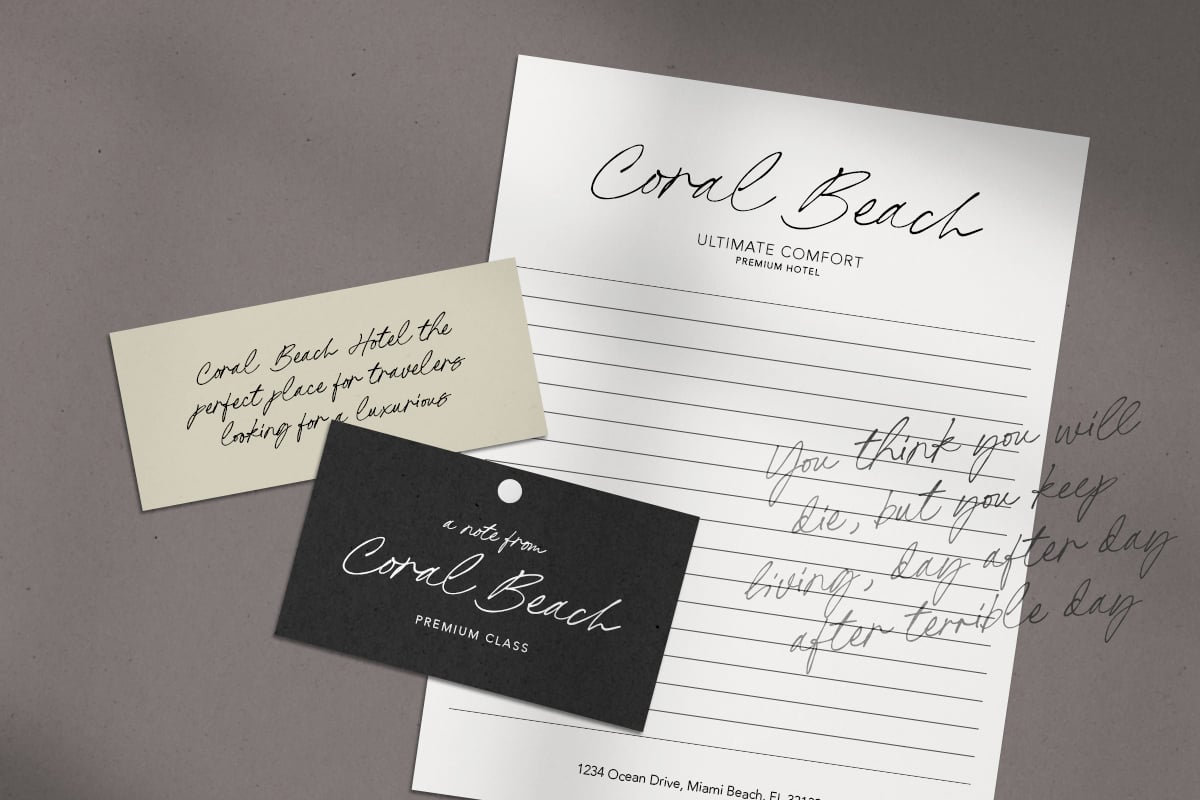 Coral Beach
ULTIMATE COMFORT
PREMIUM HOTEL
Coral Beach Hotel the
perfect place for travelers
looking for a luxurious
You think you will
die, but you keep
living, day after day
after terrible day
a note from
Coral Beach
PREMIUM CLASS
1234 Ocean Drive, Miami Beach, FL